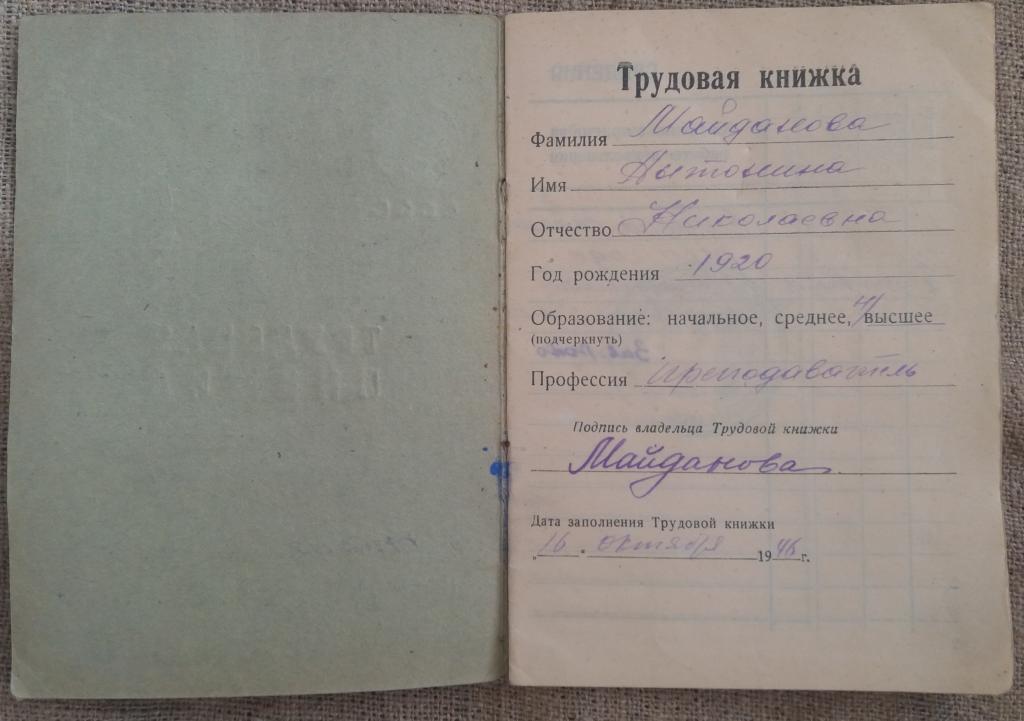 Трудовая книжка
Фамилия Майданова
Имя Антонина
Отчество Николаевна
Год рождения 1920
Образование: начальное, среднее, н/высшее
(подчеркнуть)
Профессия преподаватель
Подпись владельца Трудовой книжки
Майданова
Дата заполнения Трудовой книжки
„16 " октября 1946 г.